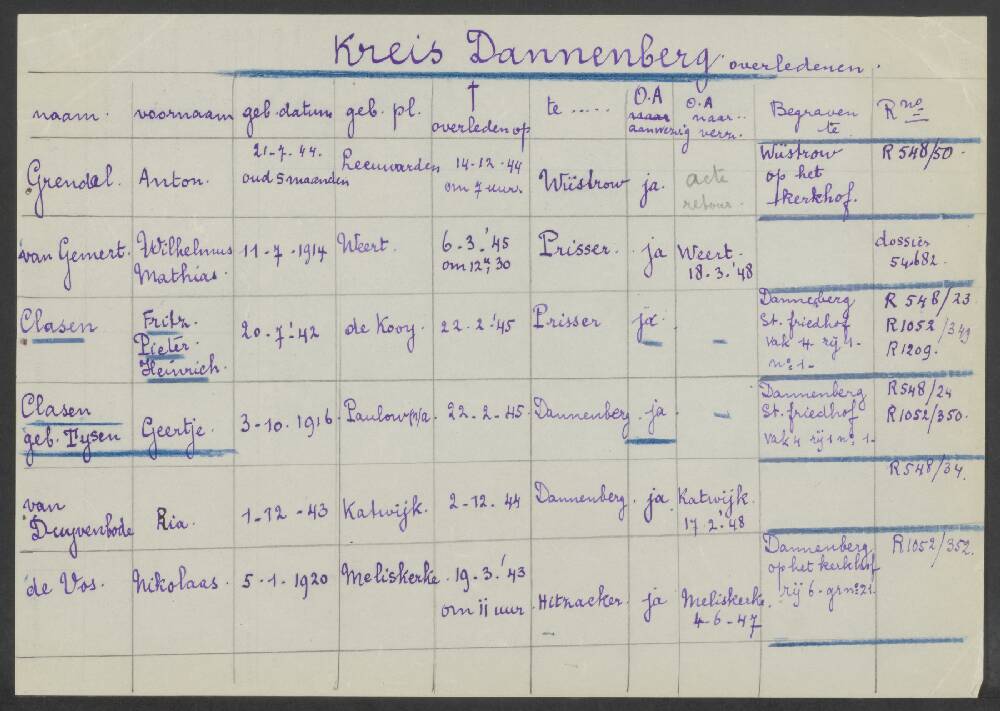 Kreis Dannenberg overledenen.
naam. voornaam geb. datum geb. pl. † overleden op te ..... O.A aanwezig O.A naar verz. Begraven te R no
Grendel. Anton. 21-7-44. oud 5 maanden Leeuwarden 14-12-44 om 7 uur. Wüstrow ja. acte retour. Wüstrow op het kerkhof. R 548/50.
van Gemert. Wilhelmus Mathias. 11-7-1914 Weert. 6-3-'45 om 12 u, 30 Prisser. ja Weert. 18-3-'48 dossier 54682.
Clasen Fritz. Pieter. Heinrich. 20-7-'42 de Kooy. 22-2-'45 Prisser ja - Dannenberg St. friedhof vak 4 rij 1- no 1- R 548/23 R1052/349 R1209.
Clasen geb. Tysen Geertje. 3-10-1916 Paulow(n)a 22-2-45 Dannenberg ja - Dannenberg St. friedhof vak 4 rij 1 no 1- R548/24 R1052/350.
van Duyvenbode Ria. 1-12-43 Katwijk. 2-12-44 Dannenberg. ja Katwijk. 17-2-'48 R548/34.
de Vos. Nikolaas. 5-1-1920 Meliskerke 19-3-'43 om 11 uur Hitzacker. ja Meliskerke. 4-6-47 Dannenberg op het kerkhof rij 6- gr no 21. R1052/352.